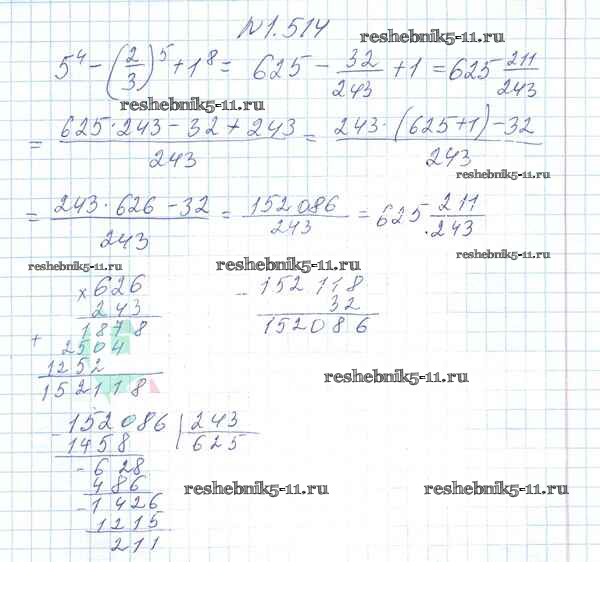 №1.514
reshebnik5-11.ru
5⁴ − (2/3)⁵ + 1⁸ = 625 − 32/243 + 1 = 625 211/243
reshebnik5-11.ru
= (625·243 − 32 + 243)/243 = (243·(625+1) − 32)/243
reshebnik5-11.ru
= (243·626 − 32)/243 = 152086/243 = 625 211/243
reshebnik5-11.ru
reshebnik5-11.ru
reshebnik5-11.ru
× 626
243
1878
+ 2504
1252
152118
− 152118
32
152086
reshebnik5-11.ru
− 152086 | 243
1458 | 625
− 628
486
− 1426
1215
211
reshebnik5-11.ru
reshebnik5-11.ru